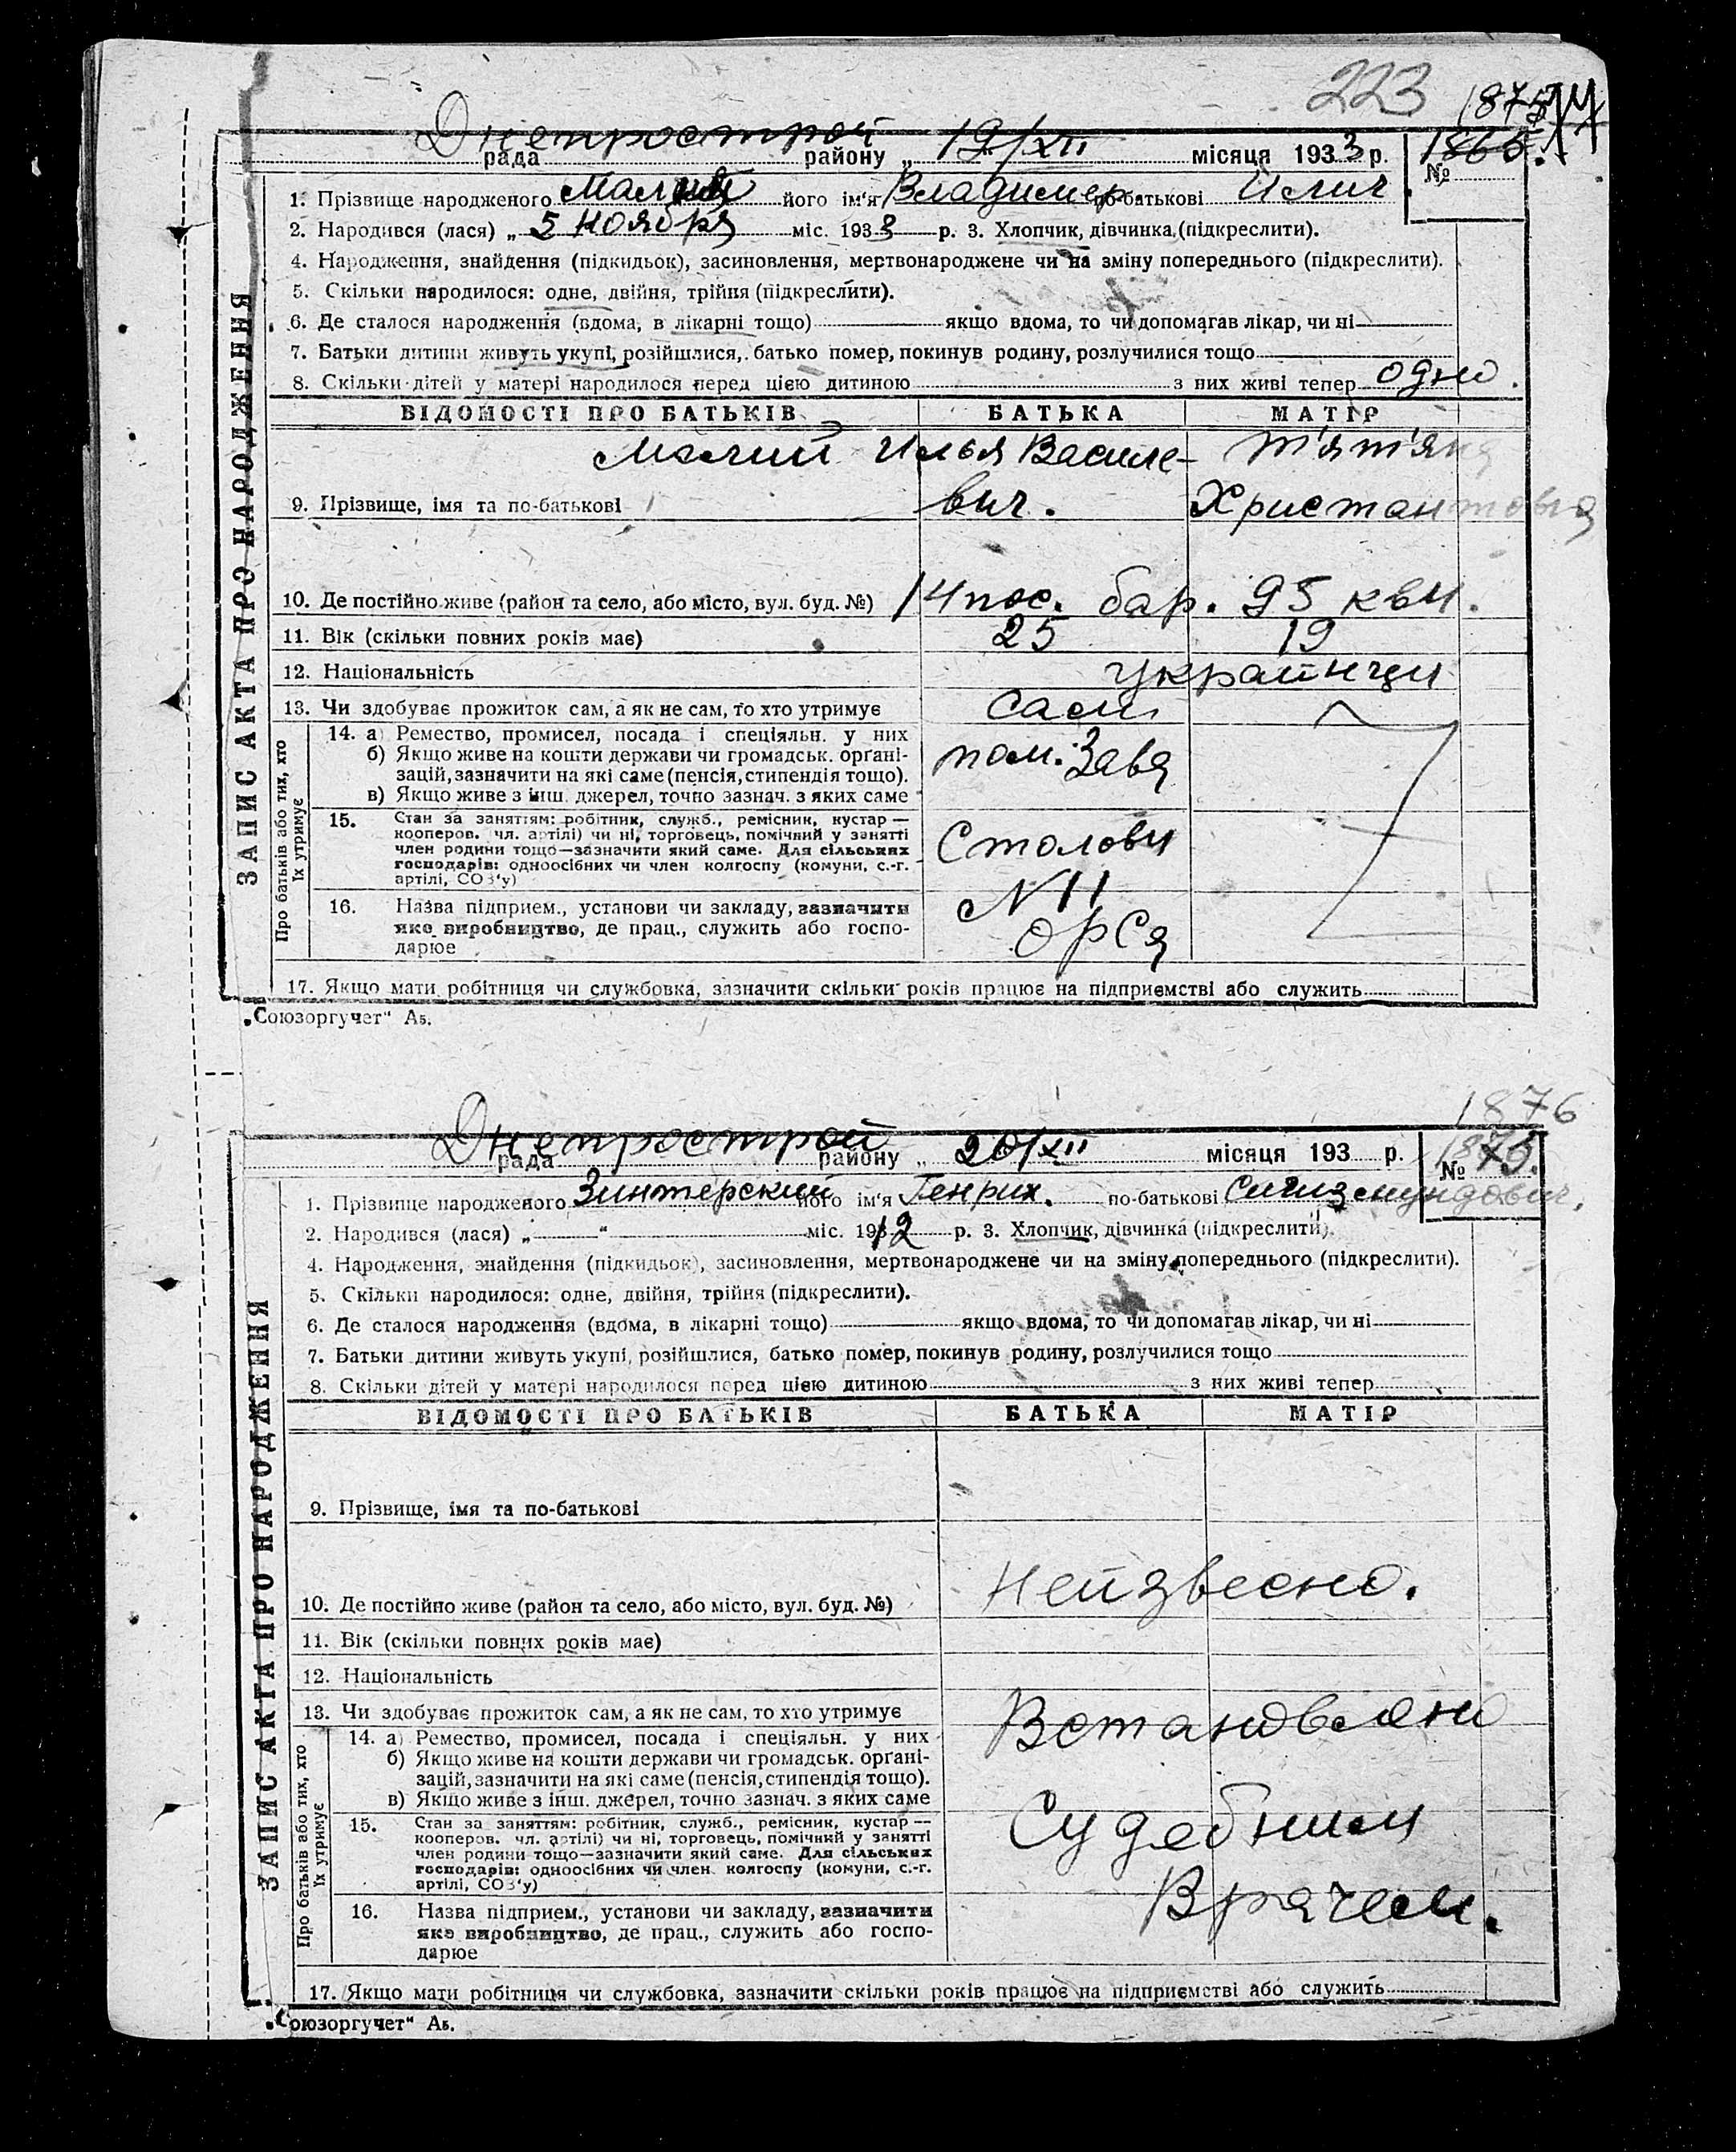 223
1875
1865.
Днепрострой
рада району „ 19/XII місяця 1933 р. №
1. Прізвище народженого Малий його ім'я Владимер по-батькові Илич
2. Народився (лася) „ 5 ноября міс. 1933 р. 3. Хлопчик, дівчинка (підкреслити).
4. Народження, знайдення (підкидьок), засиновлення, мертвонароджене чи на зміну попереднього (підкреслити).
5. Скільки народилося: одне, двійня, трійня (підкреслити).
6. Де сталося народження (вдома, в лікарні тощо) якщо вдома, то чи допомагав лікар, чи ні
7. Батьки дитини живуть укупі, розійшлися, батько помер, покинув родину, розлучилися тощо
8. Скільки дітей у матері народилося перед цією дитиною з них живі тепер одно.
ЗАПИС АКТА ПРО НАРОДЖЕННЯ
ВІДОМОСТІ ПРО БАТЬКІВ БАТЬКА МАТІР
Малий Илья Василе- Т'ят'яна
9. Прізвище, імя та по-батькові вич. Христантовна
10. Де постійно живе (район та село, або місто, вул. буд. №) 14 пос. бар. 95 кви.
11. Вік (скільки повних років має) 25 19
12. Національність украинци
13. Чи здобуває прожиток сам, а як не сам, то хто утримує сам
Про батьків або тих, хто
їх утримує
14. а) Ремество, промисел, посада і спеціяльн. у них
б) Якщо живе на кошти держави чи громадськ. орґані-
зацій, зазначити на які саме (пенсія, стипендія тощо).
в) Якщо живе з інш. джерел, точно зазнач. з яких саме
пом. Завя
15. Стан за заняттям: робітник, служб., ремісник, кустар —
кооперов. чл. артілі) чи ні, торговець, помічний у занятті
член родини тощо—зазначити який саме. Для сільських
господарів: одноосібних чи член колгоспу (комуни, с.-г.
артілі, СОЗ'у)
Столови
16. Назва підприєм., установи чи закладу, зазначити
яке виробництво, де прац., служить або госпо-
дарює
N 11
ОрСя
17. Якщо мати робітниця чи службовка, зазначити скільки років працює на підприємстві або служить
„Союзоргучет" Аб.
1876
Днепрострой
рада району „ 20/XII місяця 193 р. №
1. Прізвище народженого Зинтерский його ім'я Генрих. по-батькові Сигизмундович.
2. Народився (лася) „ “ міс. 1912 р. 3. Хлопчик, дівчинка (підкреслити).
4. Народження, знайдення (підкидьок), засиновлення, мертвонароджене чи на зміну попереднього (підкреслити).
5. Скільки народилося: одне, двійня, трійня (підкреслити).
6. Де сталося народження (вдома, в лікарні тощо) якщо вдома, то чи допомагав лікар, чи ні
7. Батьки дитини живуть укупі, розійшлися, батько помер, покинув родину, розлучилися тощо
8. Скільки дітей у матері народилося перед цією дитиною з них живі тепер
ЗАПИС АКТА ПРО НАРОДЖЕННЯ
ВІДОМОСТІ ПРО БАТЬКІВ БАТЬКА МАТІР
9. Прізвище, імя та по-батькові
10. Де постійно живе (район та село, або місто, вул. буд. №) Неизвесно.
11. Вік (скільки повних років має)
12. Національність
13. Чи здобуває прожиток сам, а як не сам, то хто утримує Встановлено
Про батьків або тих, хто
їх утримує
14. а) Ремество, промисел, посада і спеціяльн. у них
б) Якщо живе на кошти держави чи громадськ. орґані-
зацій, зазначити на які саме (пенсія, стипендія тощо).
в) Якщо живе з інш. джерел, точно зазнач. з яких саме
15. Стан за заняттям: робітник, служб., ремісник, кустар —
кооперов. чл. артілі) чи ні, торговець, помічний у занятті
член родини тощо—зазначити який саме. Для сільських
господарів: одноосібних чи член колгоспу (комуни, с.-г.
артілі, СОЗ'у)
Судебним
16. Назва підприєм., установи чи закладу, зазначити
яке виробництво, де прац., служить або госпо-
дарює
Врачем.
17. Якщо мати робітниця чи службовка, зазначити скільки років працює на підприємстві або служить
„Союзоргучет" Аб.